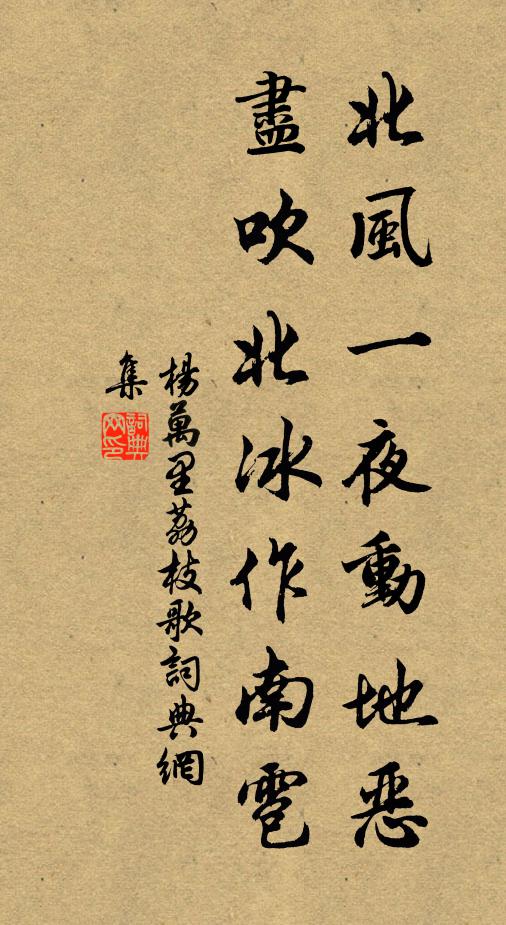 北風一夜動地恶
盡吹北冰作南雹
楊萬里荔枝歌詞典網
集
詞典
网印